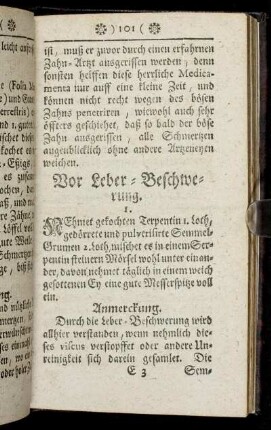 ❊ ) 101 ( ❊
ist, muß er zuvor durch einen erfahrnen
Zahn-Artzt ausgerissen werden; denn
sonsten helffen diese herrliche Medica-
menta nur auff eine kleine Zeit, und
können nicht recht wegen des bösen
Zahns penetriren, wiewohl auch sehr
öffters geschiehet, daß so bald der böse
Zahn ausgerissen, alle Schmertzen
augenblicklich ohne andere Artzeneyen
weichen.
Vor Leber-Beschwe-
rung.
1.
NEhmet gekochten Terpentin 1. Loth,
gedörrete und pulverisirte Semmel-
Grumen 2. Loth, mischet es in einem Ser-
pentin steinern Mörsel wohl unter einan-
der, davon nehmet täglich in einem weich
gesottenen Ey eine gute Messerspitze voll
ein.
Anmerckung.
Durch die Leber-Beschwerung wird
allhier verstanden, wenn nehmlich die-
ses viscus verstopffet oder andere Un-
reinigkeit sich darein gesamlet. Die
E 3 Sem-